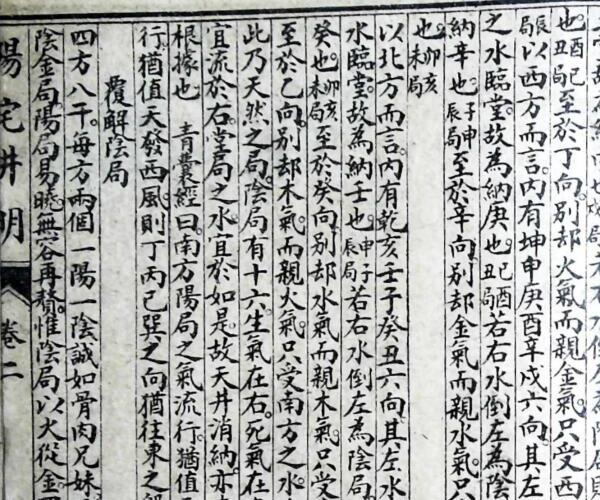 也酉巳丑局至於丁向別却火氣而親金氣只受西
辰局以西方而言內有坤申庚酉辛戌六向其左
之水臨堂故為納庚也巳酉丑局若右水倒左為陰
納辛也子申辰局至於辛向別却金氣而親水氣只
以北方而言內有乾亥壬子癸丑六向其左水
水臨堂故為納壬也申子辰局若右水倒左為陰局
癸也卯亥未局至於癸向別却水氣而親木氣只受
至於乙向別却木氣而親火氣只受南方之水
此乃天然之局陰局有十六生氣在右死氣在
宜流於右堂局之水宜於如是故天井消納亦
根據也 青囊經曰南方陽局之氣流行猶值
行猶值大發西風則丁丙已巽之向猶往東之
覆解陰局
四方八干每方兩個一陽一陰誠如骨肉兄妹
陰金局陽局易曉無容再贅惟陰局以火從金
陽宅井明
卷二